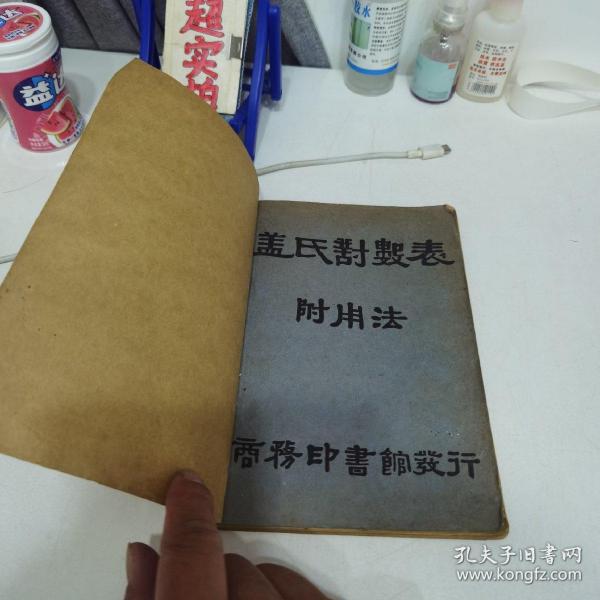 超实拍
益达
胶水
盖氏對數表
附用法
商務印書館發行
孔夫子旧书网
www.kongfz.com